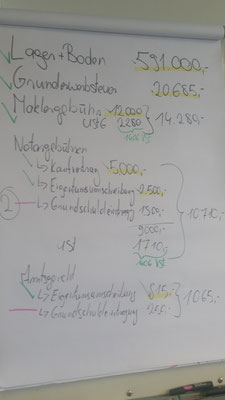 Lager + Boden 591.000,-
Grunderwerbsteuer 20.685,-
Maklergebühr 12.000
USt 2280 } 14.280,-
Notargebühren
↳ Kaufvertrag 5.000,-
↳ Eigentumsumschreibung 2.500,-
2 ↳ Grundschuldeintragung 1.500,-
9.000,- } 10.710,-
USt 1.710,-
Amtsgericht
↳ Eigentumsumschreibung 815,-
↳ Grundschuldeintragung 250,- } 1.065,-